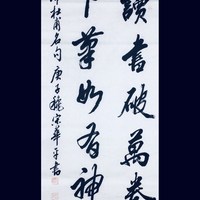 讀書破萬卷
下筆如有神
杜甫名句 庚子 宋華平書